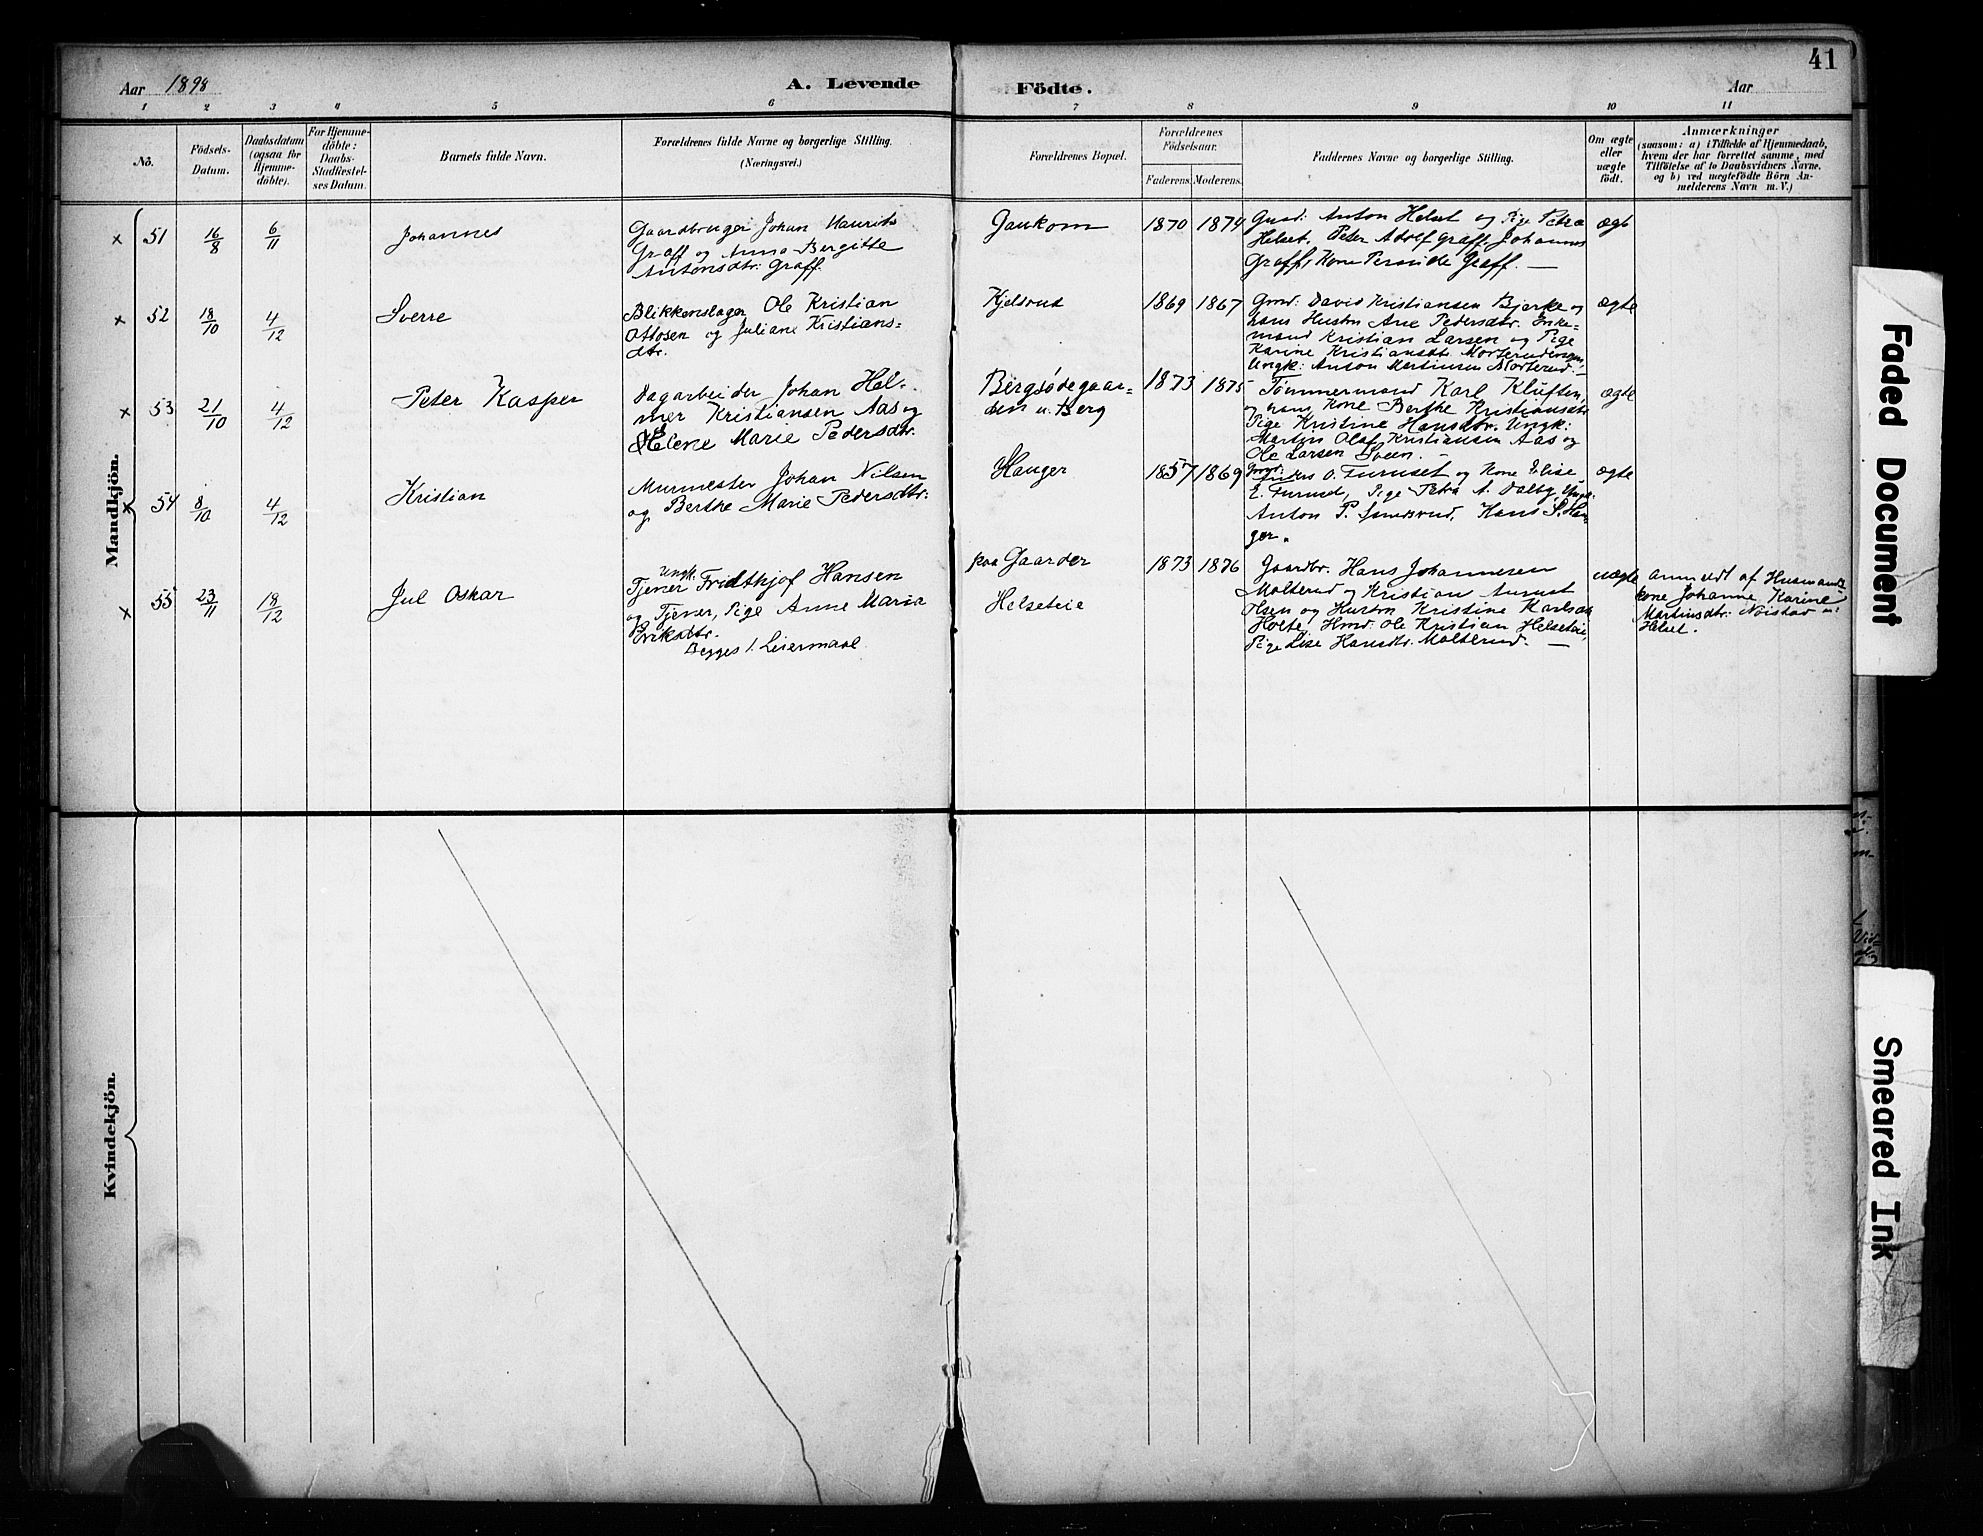 41
Aar 1898 A. Levende Födte. Aar
1 2 3 4 5 6 7 8 9 10 11
No.
Födsels-
Datum.
Daabsdatum
(ogsaa for
Hjemme-
döbte).
For Hjemme-
döbte:
Daabs-
Stadfæstel-
ses Datum.
Barnets fulde Navn.
Forældrenes fulde Navne og borgerlige Stilling.
(Næringsvei.)
Forældrenes Bopæl.
Forældrenes
Födselsaar.
Faderens. Moderens.
Faddernes Navne og borgerlige Stilling.
Om ægte
eller
uægte
födt.
Anmærkninger
(saasom: a) i Tilfælde af Hjemmedaab,
hvem der har forrettet samme, med
Tilföielse af to Daabsvidners Navne.
og b) ved uægtefödte Börn An-
melderens Navn m. V.)
Mandkjön.
x 51 16/8 6/11 Johannes
Gaardbruger Johan Maurits
Graff og Anna Bergitte
Antonsdtr. Graff.
Gaukom 1870 1874
Gmd: Anton Helset og Pige Petra
Helset, Peter Adolf Graff, Johannes
Graff, Kone Pernude Graff. —
ægte
x 52 18/10 4/12 Sverre
Blikkenslager Ole Kristian
Ottosen og Juliane Kristians-
dtr.
Kjelsrud 1869 1867
Gmd: David Kristiansen Bjerke og
hans Hustru Ane Pedersdtr. Enke-
mand Kristian Larsen og Pige
Karine Kristiansdtr. Morterudengen,
Ungk: Anton Martinsen Morterud —
ægte
x 53 21/10 4/12 Peter Kasper
Dagarbeider Johan Hel-
mer Kristiansen Aas og
Helene Marie Pedersdtr.
Bergsødegaar-
den u. Berg
1873 1875
Tømmermand Karl Kluften,
og hans Kone Berthe Kristiansdtr.
Pige Kristine Hansdtr. Ungk:
Martin Olaf Kristiansen Aas og
Ole Larsen Sveen. —
ægte
x 54 8/10 4/12 Kristian
Murmester Johan Nilsen
og Berthe Marie Pedersdtr.
Hauger 1857 1869
Gmd: Anders O. Furuset og Kone Elise
E. Furuset, Pige Petra A. Dalby, Ungk.
Anton P. Smedsrud, Hans S. Hau-
ger.
ægte
x 55 23/11 18/12 Jul Oskar
Ungk.
Tjener Fridthjof Hansen
og Tjener, Pige Anne Maria
Eriksdtr.
Begges 1. Leiermaal
paa Gaarder
Helseteie
1873 1876
Gaardbr. Hans Johannesen
Molterud og Kristian August
Olsen og Hustru Kristine Karlsdtr.
Holte, Hmd. Ole Kristian Helseteie,
Pige Lise Hansdtr. Molterud. —
uægte
anmeldt af Husmands-
kone Johanne Karine
Martinsdtr. Nøistad u:
Helset.
Kvindekjön.
Faded Document
Smeared Ink